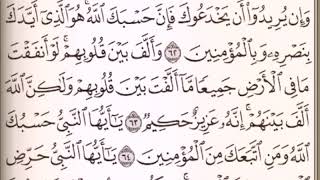 وَإِن يُرِيدُوٓا۟ أَن يَخْدَعُوكَ فَإِنَّ حَسْبَكَ ٱللَّهُ ۚ هُوَ ٱلَّذِىٓ أَيَّدَكَ
بِنَصْرِهِۦ وَبِٱلْمُؤْمِنِينَ ٦٢ وَأَلَّفَ بَيْنَ قُلُوبِهِمْ ۚ لَوْ أَنفَقْتَ
مَا فِى ٱلْأَرْضِ جَمِيعًا مَّآ أَلَّفْتَ بَيْنَ قُلُوبِهِمْ وَلَـٰكِنَّ ٱللَّهَ
أَلَّفَ بَيْنَهُمْ ۚ إِنَّهُۥ عَزِيزٌ حَكِيمٌ ٦٣ يَـٰٓأَيُّهَا ٱلنَّبِىُّ حَسْبُكَ
ٱللَّهُ وَمَنِ ٱتَّبَعَكَ مِنَ ٱلْمُؤْمِنِينَ ٦٤ يَـٰٓأَيُّهَا ٱلنَّبِىُّ حَرِّضِ